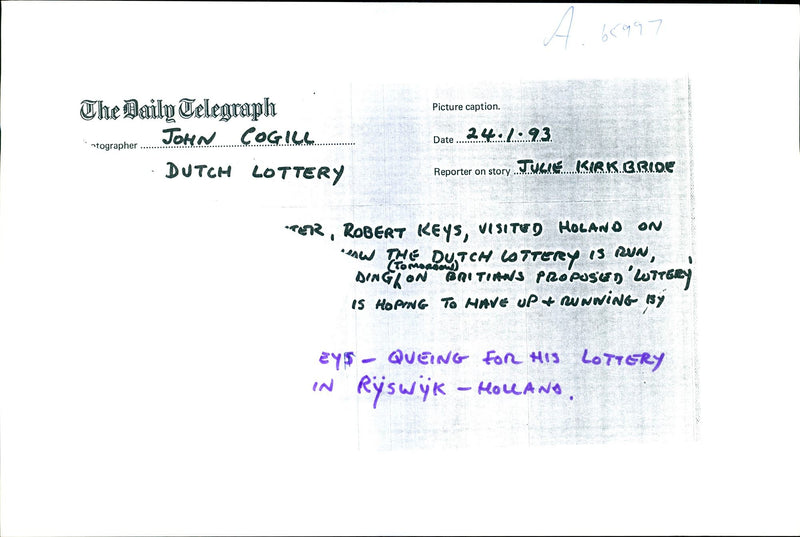 A. 65997
The Daily Telegraph
Picture caption.
otographer JOHN COGILL
Date 24.1.93
DUTCH LOTTERY
Reporter on story JULIE KIRKBRIDE
TER, ROBERT KEYS, VISITED HOLAND ON
THE DUTCH LOTTERY IS RUN,
(TOMORROW)
DING ON BRITIANS PROPOSED 'LOTTERY
IS HOPING TO HAVE UP + RUNNING BY
EYS - QUEING FOR HIS LOTTERY
IN RIJSWIJK - HOLLAND.